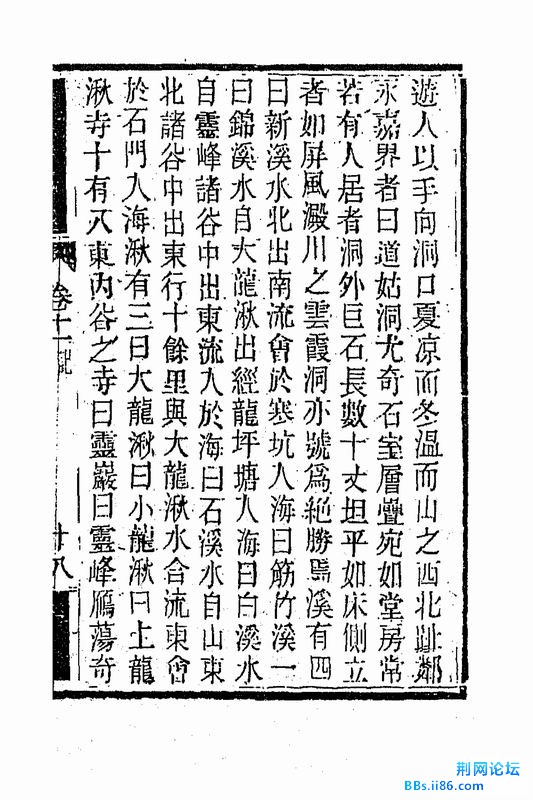 遊人以手向洞口夏凉而冬溫而山之西北趾鄰
永嘉界者曰道姑洞尤奇石室層疊宛如堂房常
若有人居者洞外巨石長數十丈坦平如床側立
者如屏風澱川之雲霞洞亦號爲絕勝焉溪有四
曰新溪水北出南流會於寒坑入海曰筋竹溪一
曰錦溪水自大龍湫出經龍坪塘入海曰白溪水
自靈峰諸谷中出東流入於海曰石溪水自山東
北諸谷中出東行十餘里與大龍湫水合流東會
於石門入海湫有三曰大龍湫曰小龍湫曰上龍
湫寺十有八東內谷之寺曰靈巖曰靈峰鴈蕩奇
卷十一 記
十八
荆网论坛
BBs.ii86.com